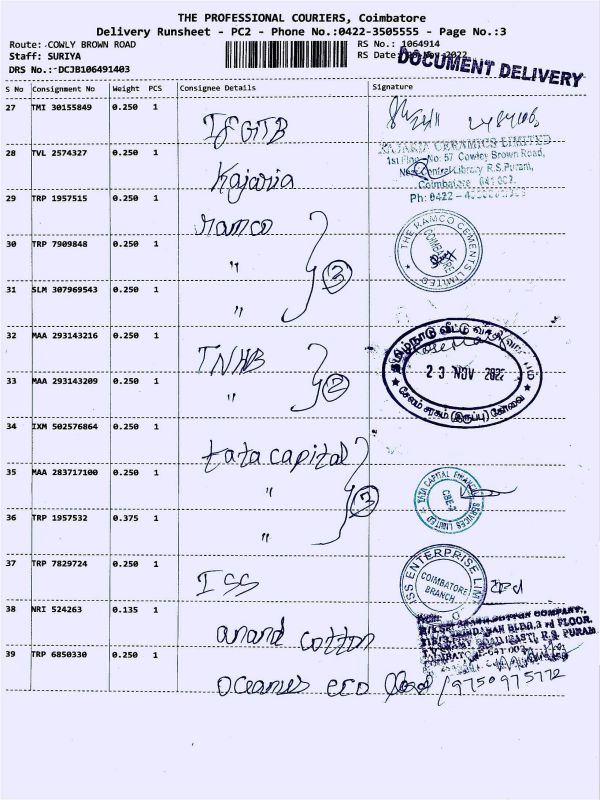 THE PROFESSIONAL COURIERS, Coimbatore
Delivery Runsheet - PC2 - Phone No.:0422-3505555 - Page No.:3
Route: COWLY BROWN ROAD
RS No.: 1064914
Staff: SURIYA
RS Date: Nov 2022
DRS No.:-DCJB106491403
DOCUMENT DELIVERY
S No Consignment No Weight PCS Consignee Details Signature
27 TMI 30155849 0.250 1 IFGTB
28 TVL 2574327 0.250 1 Kajaria
KAJARIA CERAMICS LIMITED
1st Floor No: 57 Cowley Brown Road,
Near Central Library R.S.Puram,
Coimbatore 641 002.
Ph: 0422
29 TRP 1957515 0.250 1 ramco
30 TRP 7909848 0.250 1 " 3
THE RAMCO CEMENTS LIMITED
31 SLM 307969543 0.250 1 "
32 MAA 293143216 0.250 1 TNHB
33 MAA 293143209 0.250 1 " 2
தமிழ்நாடு வீட்டு வசதி
23 NOV 2022
சேலம் சரகம் (இருப்பு) கோவை
34 IXM 502576864 0.250 1 tata capital
35 MAA 283717100 0.250 1 " 3
TATA CAPITAL FINANCIAL SERVICES LIMITED
CBE-2
36 TRP 1957532 0.375 1 "
37 TRP 7829724 0.250 1 ISS
ISS ENTERPRISE LIM
COIMBATORE
BRANCH
38 NRI 524263 0.135 1 anand cotton
COTTON COMPANY,
BLDG, 3 rd FLOOR.
R.S. PURAM
39 TRP 6850330 0.250 1 oceanus eco
9750975772